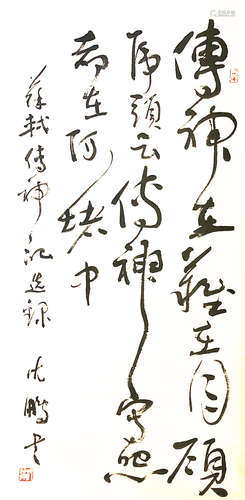 傳神之難在目顧
虎頭云傳神寫照
都在阿堵中
蘇軾傳神記選錄
沈鵬書